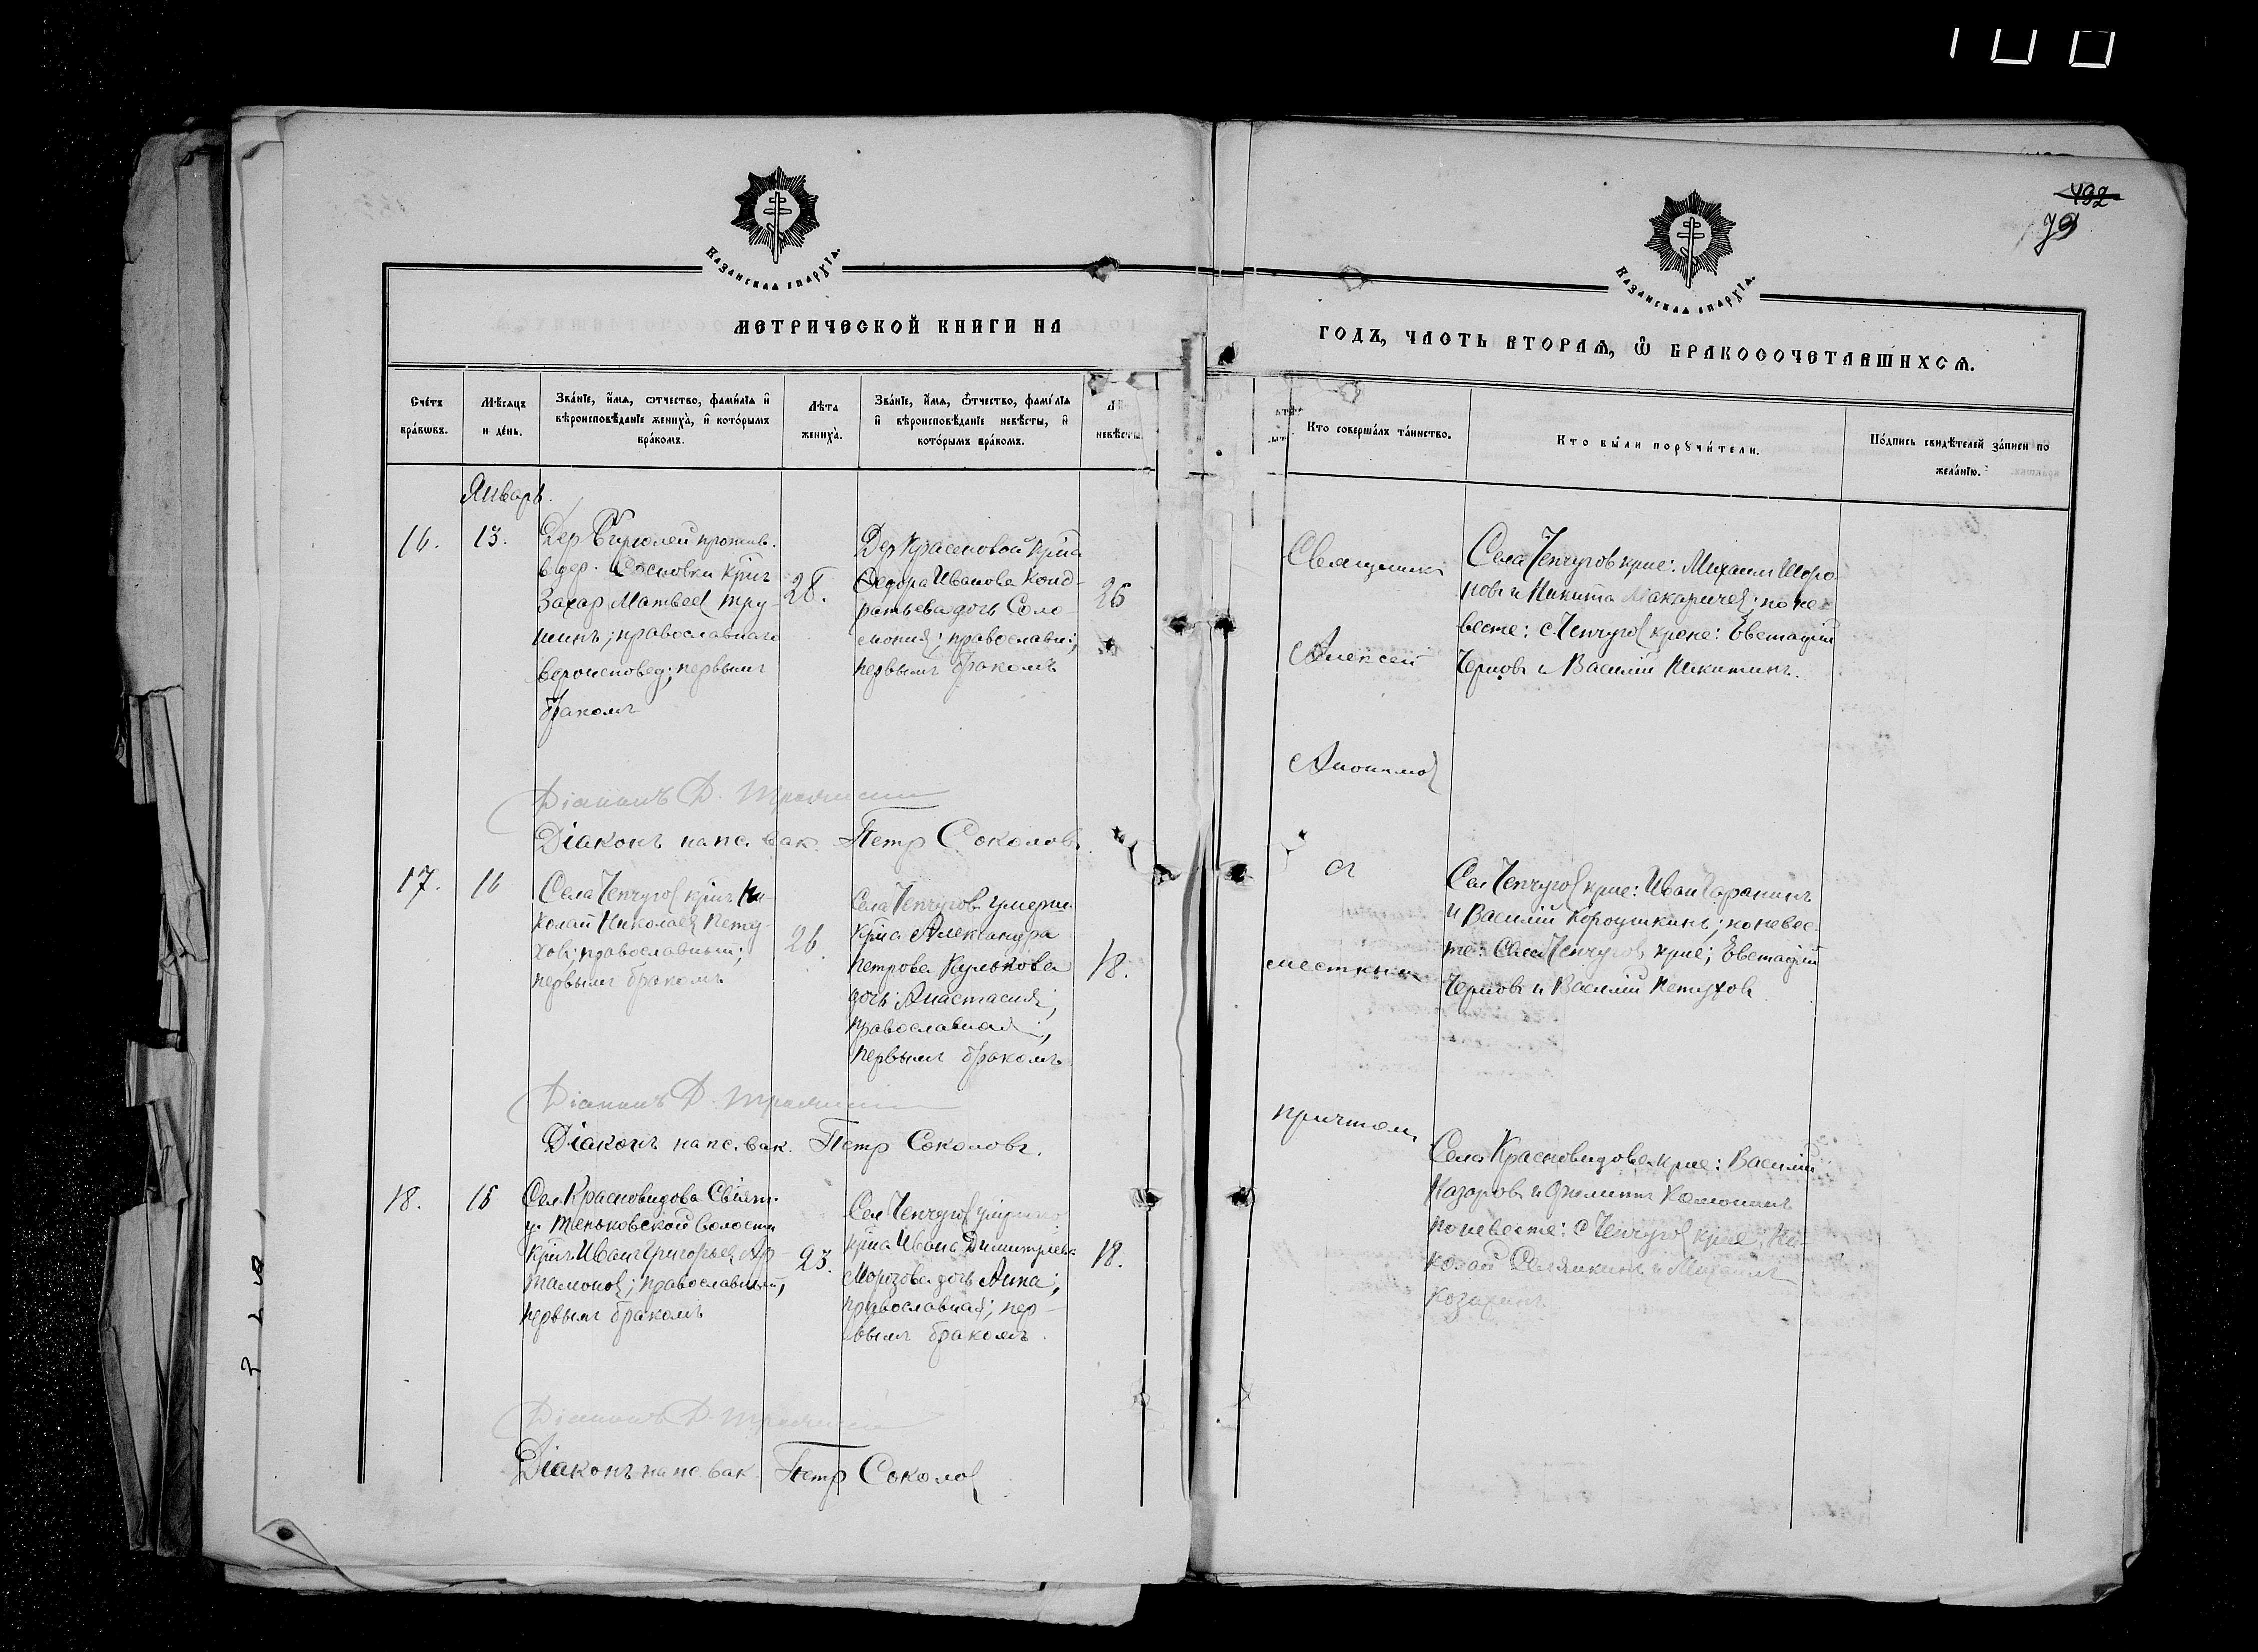 492
79
Казанская епархія.
Казанская епархія.
МЕТРИЧЕСКОЙ КНИГИ НА
ГОДЪ, ЧАСТЬ ВТОРАЯ, Ѡ БРАКОСОЧЕТАВШИХСЯ.
Счетъ браковъ.
Мѣсяцъ и день.
Званіе, имя, отчество, фамилія и вѣроисповѣданіе жениха, и которымъ бракомъ.
Лѣта жениха.
Званіе, имя, отчество, фамилія и вѣроисповѣданіе невѣсты, и которымъ бракомъ.
невѣсты.
Кто совершалъ таинство.
Кто были поручители.
Подпись свидѣтелей записи по желанію.
Январь.
16.
13.
Дер. Бирюлей прожив.
в дер. Сосновки крнъ
Захар Матвеев Тру-
шинъ; православнаго
вероисповед; первымъ
бракомъ
28.
Дер Красновой крна
Федора Иванова Конд-
ратьева дочь Соло-
монія; православн;
первымъ бракомъ
26
Священникъ
Алексей
Села Чепчугов крне: Михаил
нов и Никита Макаричев; по не-
весте: с. Чепчугов крне: Евстафій
Чернов и Василій Никитинъ.
Діаконъ Д.
Діаконъ на пс. вак. Петр Соколовъ.
17.
16
Села Чепчугов крнъ Ни-
колай Николаев Пету-
хов; православный;
первымъ бракомъ
26.
Села Чепчугов умерш.
крна Александра
Петрова Кулькова
дочь Анастасія;
православная;
первымъ бракомъ
18.
с
местнымъ
причтом
Сел Чепчугов крне: Иван Гаранинъ
и Василій Корочкинъ; по невес-
те: Села Чепчугов крне; Евстафій
Чернов и Василій Петухов
Діаконъ Д.
Діаконъ на пс. вак. Петр Соколовъ.
18.
15
Сел Красновидова Свіяж.
у. Теньковской волости
крнъ Иван Григорьев Ар-
тамонов; православный;
первымъ бракомъ
23.
Сел Чепчугов умершаго
крна Ивана Димитріева
Морозова дочь Анна;
православная; пер-
вымъ бракомъ.
18.
Села Красновидова крне: Василій
Назаров и Филиппъ
по невесте: с Чепчугов крне; Ни-
колай и Михаилъ
Діаконъ Д.
Діаконъ на пс. вак. Петр Соколов